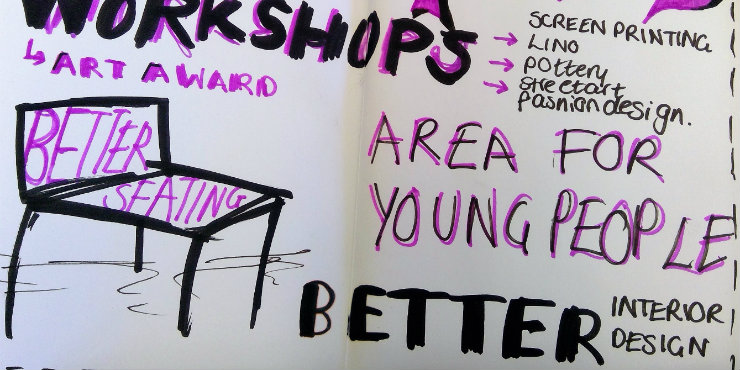 WORKSHOPS
↳ ART AWARD
→ SCREEN PRINTING
→ LINO
→ pottery
→ streetart
fashion design.
BETTER
SEATING
AREA FOR
YOUNG PEOPLE
BETTER INTERIOR
DESIGN